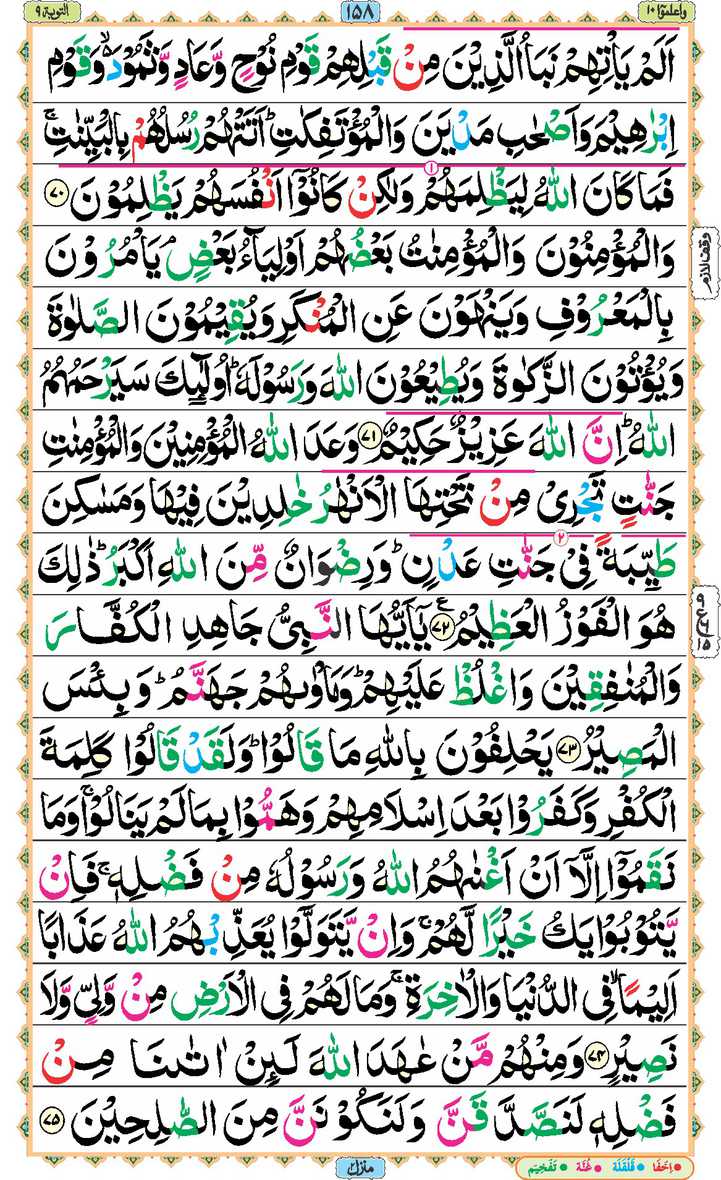 واعلموٓا ١٠ ١٥٨ التوبة ٩
اَلَمْ يَاْتِهِمْ نَبَاُ الَّذِيْنَ مِنْ قَبْلِهِمْ قَوْمِ نُوْحٍ وَّعَادٍ وَّثَمُوْدَ ۙ۬ وَقَوْمِ
اِبْرٰهِيْمَ وَاَصْحٰبِ مَدْيَنَ وَالْمُؤْتَفِكٰتِ ؕ اَتَتْهُمْ رُسُلُهُمْ بِالْبَيِّنٰتِ ۚ
۱
فَمَا كَانَ اللّٰهُ لِيَظْلِمَهُمْ وَلٰكِنْ كَانُوْۤا اَنْفُسَهُمْ يَظْلِمُوْنَ ﴿۷۰﴾
وَالْمُؤْمِنُوْنَ وَالْمُؤْمِنٰتُ بَعْضُهُمْ اَوْلِيَآءُ بَعْضٍ ۘ يَاْمُرُوْنَ
وقف لازم
بِالْمَعْرُوْفِ وَيَنْهَوْنَ عَنِ الْمُنْكَرِ وَيُقِيْمُوْنَ الصَّلٰوةَ
وَيُؤْتُوْنَ الزَّكٰوةَ وَيُطِيْعُوْنَ اللّٰهَ وَرَسُوْلَهٗ ؕ اُولٰٓئِكَ سَيَرْحَمُهُمُ
اللّٰهُ ؕ اِنَّ اللّٰهَ عَزِيْزٌ حَكِيْمٌ ﴿۷۱﴾ وَعَدَ اللّٰهُ الْمُؤْمِنِيْنَ وَالْمُؤْمِنٰتِ
جَنّٰتٍ تَجْرِىْ مِنْ تَحْتِهَا الْاَنْهٰرُ خٰلِدِيْنَ فِيْهَا وَمَسٰكِنَ
۲
طَيِّبَةً فِىْ جَنّٰتِ عَدْنٍ ؕ وَرِضْوَانٌ مِّنَ اللّٰهِ اَكْبَرُ ؕ ذٰلِكَ
هُوَ الْفَوْزُ الْعَظِيْمُ ﴿۷۲﴾ ع يٰۤاَيُّهَا النَّبِىُّ جَاهِدِ الْكُفَّارَ
وَالْمُنٰفِقِيْنَ وَاغْلُظْ عَلَيْهِمْ ؕ وَمَاْوٰىهُمْ جَهَنَّمُ ؕ وَبِئْسَ
الْمَصِيْرُ ﴿۷۳﴾ يَحْلِفُوْنَ بِاللّٰهِ مَا قَالُوْا ؕ وَلَقَدْ قَالُوْا كَلِمَةَ
الْكُفْرِ وَكَفَرُوْا بَعْدَ اِسْلَامِهِمْ وَهَمُّوْا بِمَا لَمْ يَنَالُوْا ۚ وَمَا
نَقَمُوْۤا اِلَّاۤ اَنْ اَغْنٰىهُمُ اللّٰهُ وَرَسُوْلُهٗ مِنْ فَضْلِهٖ ۚ فَاِنْ
يَّتُوْبُوْا يَكُ خَيْرًا لَّهُمْ ۚ وَاِنْ يَّتَوَلَّوْا يُعَذِّبْهُمُ اللّٰهُ عَذَابًا
اَلِيْمًا ۙ فِى الدُّنْيَا وَالْاٰخِرَةِ ۚ وَمَا لَهُمْ فِى الْاَرْضِ مِنْ وَّلِىٍّ وَّلَا
نَصِيْرٍ ﴿۷۴﴾ وَمِنْهُمْ مَّنْ عٰهَدَ اللّٰهَ لَئِنْ اٰتٰىنَا مِنْ
فَضْلِهٖ لَنَصَّدَّقَنَّ وَلَنَكُوْنَنَّ مِنَ الصّٰلِحِيْنَ ﴿۷۵﴾
منزل ٢
اِخفَا قَلقَلَة غُنَّة تَفخِيم